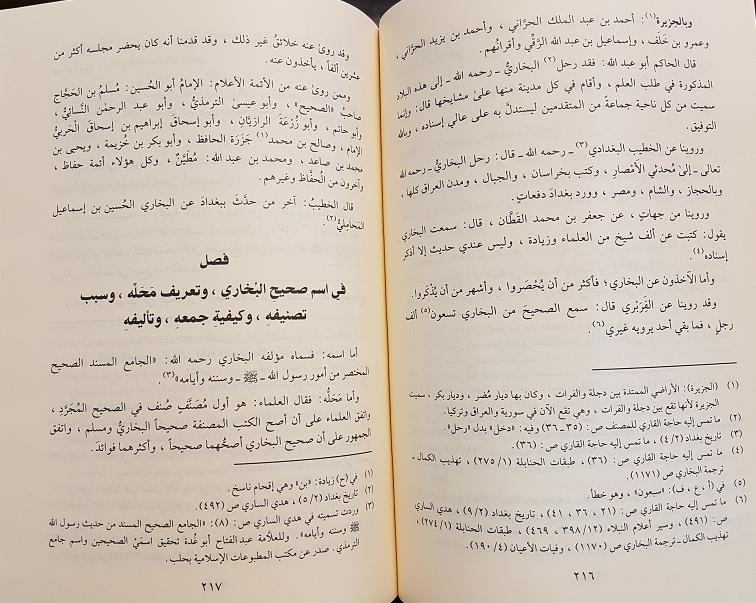 وبالجزيرة(١): أحمد بن عبد الملك الحرَّاني ، وأحمد بن يزيد الحرَّاني ،
وعمرو بن خَلَف ، وإسماعيل بن عبد الله الرَّقِّي وأقرانُهم .
قال الحاكم أبو عبد الله: فقد رحل(٢) البخاريُّ ـ رحمه الله ـ إلى هذه البلاد
المذكورة في طلب العلم ، وأقام في كل مدينة منها على مشايخها قال: وإنما
سميت من كل ناحية جماعةً من المتقدمين ليستدلَّ به على عالي إسناده ، وبالله
التوفيق .
وروينا عن الخطيب البغدادي(٣) ـ رحمه الله ـ قال: رحل البخاريُّ ـ رحمه الله
تعالى ـ إلى مُحدِّثي الأمْصار ، وكتب بخراسان ، والجبال ، ومدن العراق كلها ،
وبالحجاز ، والشام ، ومصر ، وورد بغدادَ دفعاتٍ .
وروينا من جهاتٍ ، عن جعفر بن محمد القَطَّان ، قال: سمعت البخاري
يقول: كتبت عن ألف شيخ من العلماء وزيادة ، وليس عندي حديث إلا أذكر
إسناده(٤) .
وأما الآخذون عن البخاري؛ فأكثر من أن يُحْصَروا ، وأشهر من أن يُذْكَروا .
وقد روينا عن الفَرَبْري قال: سمع الصحيحَ من البخاري تسعون(٥) ألف
رجلٍ ، فما بقي أحد يرويه غيري(٦) .
(١) (الجزيرة): الأراضي الممتدة بين دجلة والفرات ، وكان بها ديار مُضر ، وديار بكر ، سميت
الجزيرة لأنها تقع بين دجلة والفرات ، وهي تقع الآن في سورية والعراق وتركيا .
(٢) ما تمس إليه حاجة القاري للمصنف ص: (٣٥ ـ ٣٦) وفيه: «دخل» بدل «رحل» .
(٣) تاريخ بغداد (٤/٢) ، ما تمس إليه حاجة القاري ص: (٣٦) .
(٤) ما تمس إليه حاجة القاري ص: (٣٦) ، طبقات الحنابلة (٢٧٥/١) ، تهذيب الكمال ـ
ترجمة البخاري ص (١١٧١) .
(٥) في (أ ، ع ، ف): «سبعون» ، وهو خطأ .
(٦) ما تمس إليه حاجة القاري ص: (٢١ ، ٣٦ ، ٤١) ، تاريخ بغداد (٩/٢) ، هدي الساري
ص: (٤٩١) ، وسير أعلام النبلاء (٣٩٨/١٢ ، ٤٦٩) ، طبقات الحنابلة (٢٧٤/١) ،
تهذيب الكمال ـ ترجمة البخاري ص (١١٧٠) ، وفيات الأعيان (١٩٠/٤) .
٢١٦
وقد روىٰ عنه خلائقُ غير ذلك ، وقد قدمنا أنه كان يحضر مجلسه أكثر من
عشرين ألفاً ، يأخذون عنه .
وممن روىٰ عنه من الأئمة الأعلام: الإمامُ أبو الحسين: مُسلمُ بن الحَجَّاج
صاحبُ «الصحيح» ، وأبو عيسىٰ الترمذيُّ ، وأبو عبد الرحمٰن النَّسائيُّ ،
وأبو حاتم ، وأبو زُرْعَةَ الرازيَّانِ ، وأبو إسحاق إبراهيم بن إسحاق الحَربيُّ
الإمام ، وصالح بن محمد(١) جَزَرَة الحافظ ، وأبو بكر بن خُزيمة ، ويحيى بن
محمد بن صاعد ، ومحمد بن عبد الله: مُطَيَّنٌ ، وكل هؤلاء أئمة حفاظ ،
وآخرون من الْحُفَّاظ وغيرهم .
قال الخطيبُ: آخر من حدَّث ببغدادَ عن البخاري الحُسين بن إسماعيل
المَحَامِليُّ(٢) .
فصل
في اسم صحيحِ البُخاري ، وتعريف مَحَلّه ، وسبب
تصنيفهِ ، وكيفية جمعهِ ، وتأليفه
أما اسمه: فسماه مؤلفه البخاري رحمه الله: «الجامع المسند الصحيح
المختصر من أمور رسول الله ـ ﷺ ـ وسننه وأيامه»(٣) .
وأما مَحَلُّه: فقال العلماء: هو أول مُصَنَّفٍ صُنف في الصحيح المُجَرَّد ،
واتفق العلماء على أن أصح الكتب المصنفة صحيحاً البخاريُّ ومسلم ، واتفق
الجمهور على أن صحيح البخاري أصحُّهما صحيحاً ، وأكثرهما فوائدَ .
(١) في (ح) زيادة: «بن» وهي إقحام ناسخ .
(٢) تاريخ بغداد (٥/٢) ، هدي الساري ص (٤٩٢) .
(٣) وردت تسميته في هدي الساري ص: (٨): «الجامع الصحيح المسند من حديث رسول الله
ﷺ وسننه وأيامه» . وللعلاّمة عبد الفتاح أبو غُدة تحقيق اسمَيْ الصحيحين واسم جامع
الترمذي . صدر عن مكتب المطبوعات الإسلامية بحلب .
٢١٧